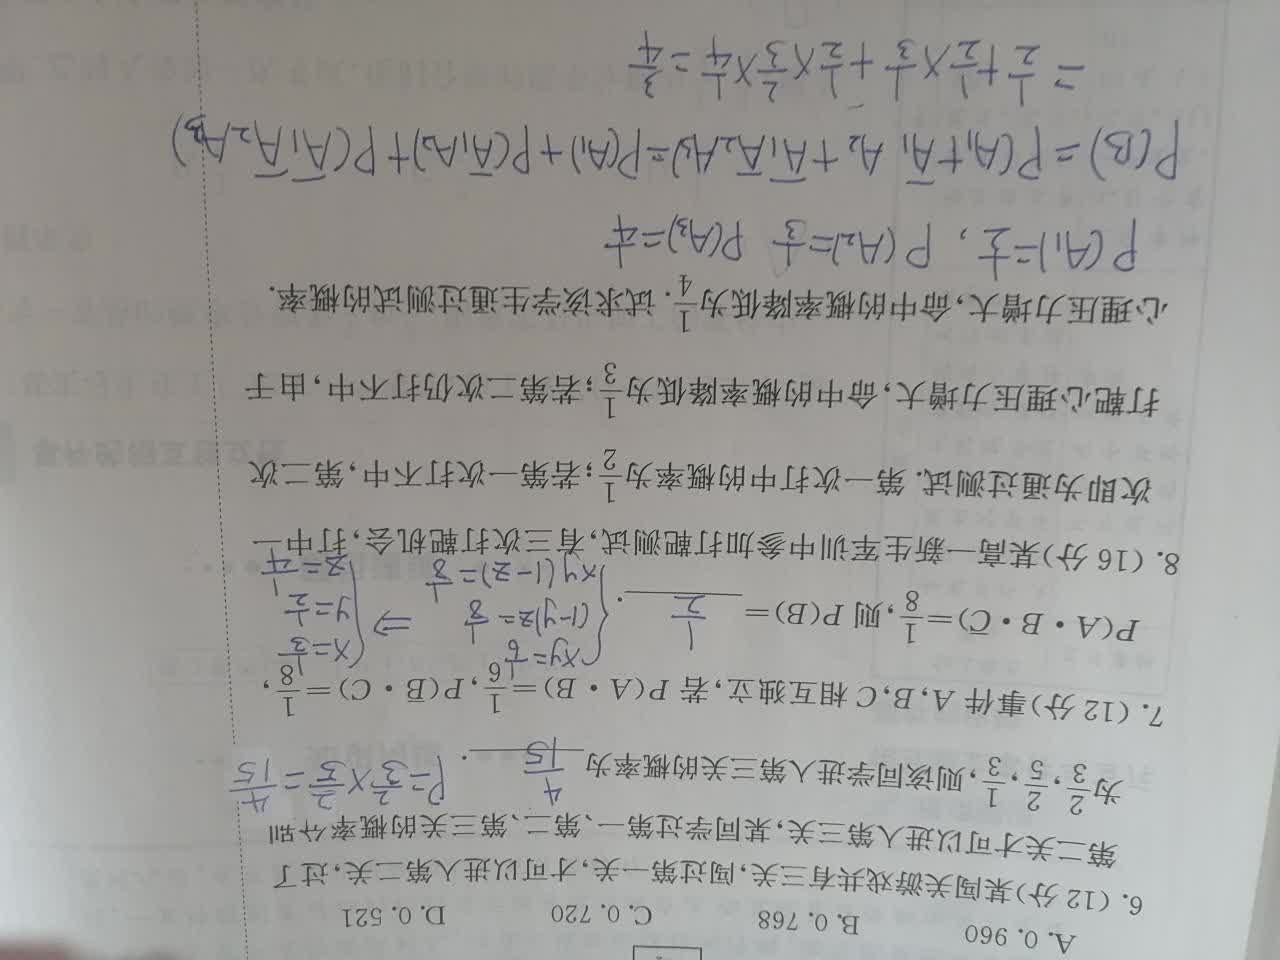 A. 0. 960 B. 0. 768 C. 0. 720 D. 0. 521
6. (12 分)某闯关游戏共有三关,闯过第一关,才可以进入第二关,过了
第二关才可以进入第三关,某同学过第一、第二、第三关的概率分别
为2/3,2/5,1/3,则该同学进入第三关的概率为 4/15 . P=2/3×2/5=4/15
7. (12 分)事件 A,B,C 相互独立,若 P(A·B)=1/6,P(B̄·C)=1/8,
P(A·B·C̄)=1/8,则 P(B)= 1/2 .
{xy=1/6
(1-y)z=1/8
xy(1-z)=1/8
⇒
{x=1/3
y=1/2
z=1/4
8. (16 分)某高一新生军训中参加打靶测试,有三次打靶机会,打中一
次即为通过测试. 第一次打中的概率为1/2;若第一次打不中,第二次
打靶心理压力增大,命中的概率降低为1/3;若第二次仍打不中,由于
心理压力增大,命中的概率降低为1/4. 试求该学生通过测试的概率.
P(A₁)=1/2, P(A₂)=1/3 P(A₃)=1/4
P(B)=P(A₁+Ā₁A₂+Ā₁Ā₂A₃)=P(A₁)+P(Ā₁A₂)+P(Ā₁Ā₂A₃)
=1/2+1/2×1/3+1/2×2/3×1/4=3/4